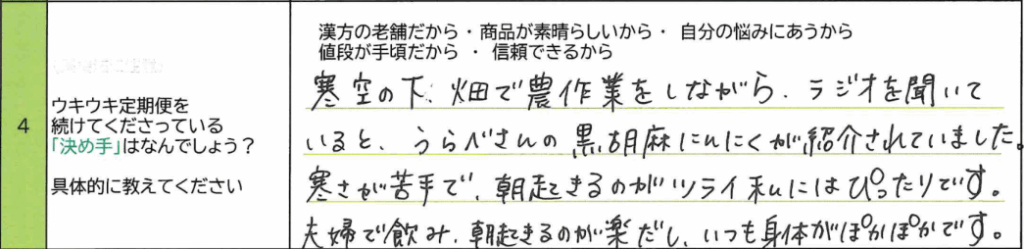 4
ウキウキ定期便を
続けてくださっている
「決め手」はなんでしょう？
具体的に教えてください
漢方の老舗だから・商品が素晴らしいから・ 自分の悩みにあうから
値段が手頃だから ・ 信頼できるから
寒空の下、畑で農作業をしながら、ラジオを聞いて
いると、うらべさんの黒胡麻にんにくが紹介されていました。
寒さが苦手で、朝起きるのがツライ私にはぴったりです。
夫婦で飲み、朝起きるのが楽だし、いつも身体がぽかぽかです。